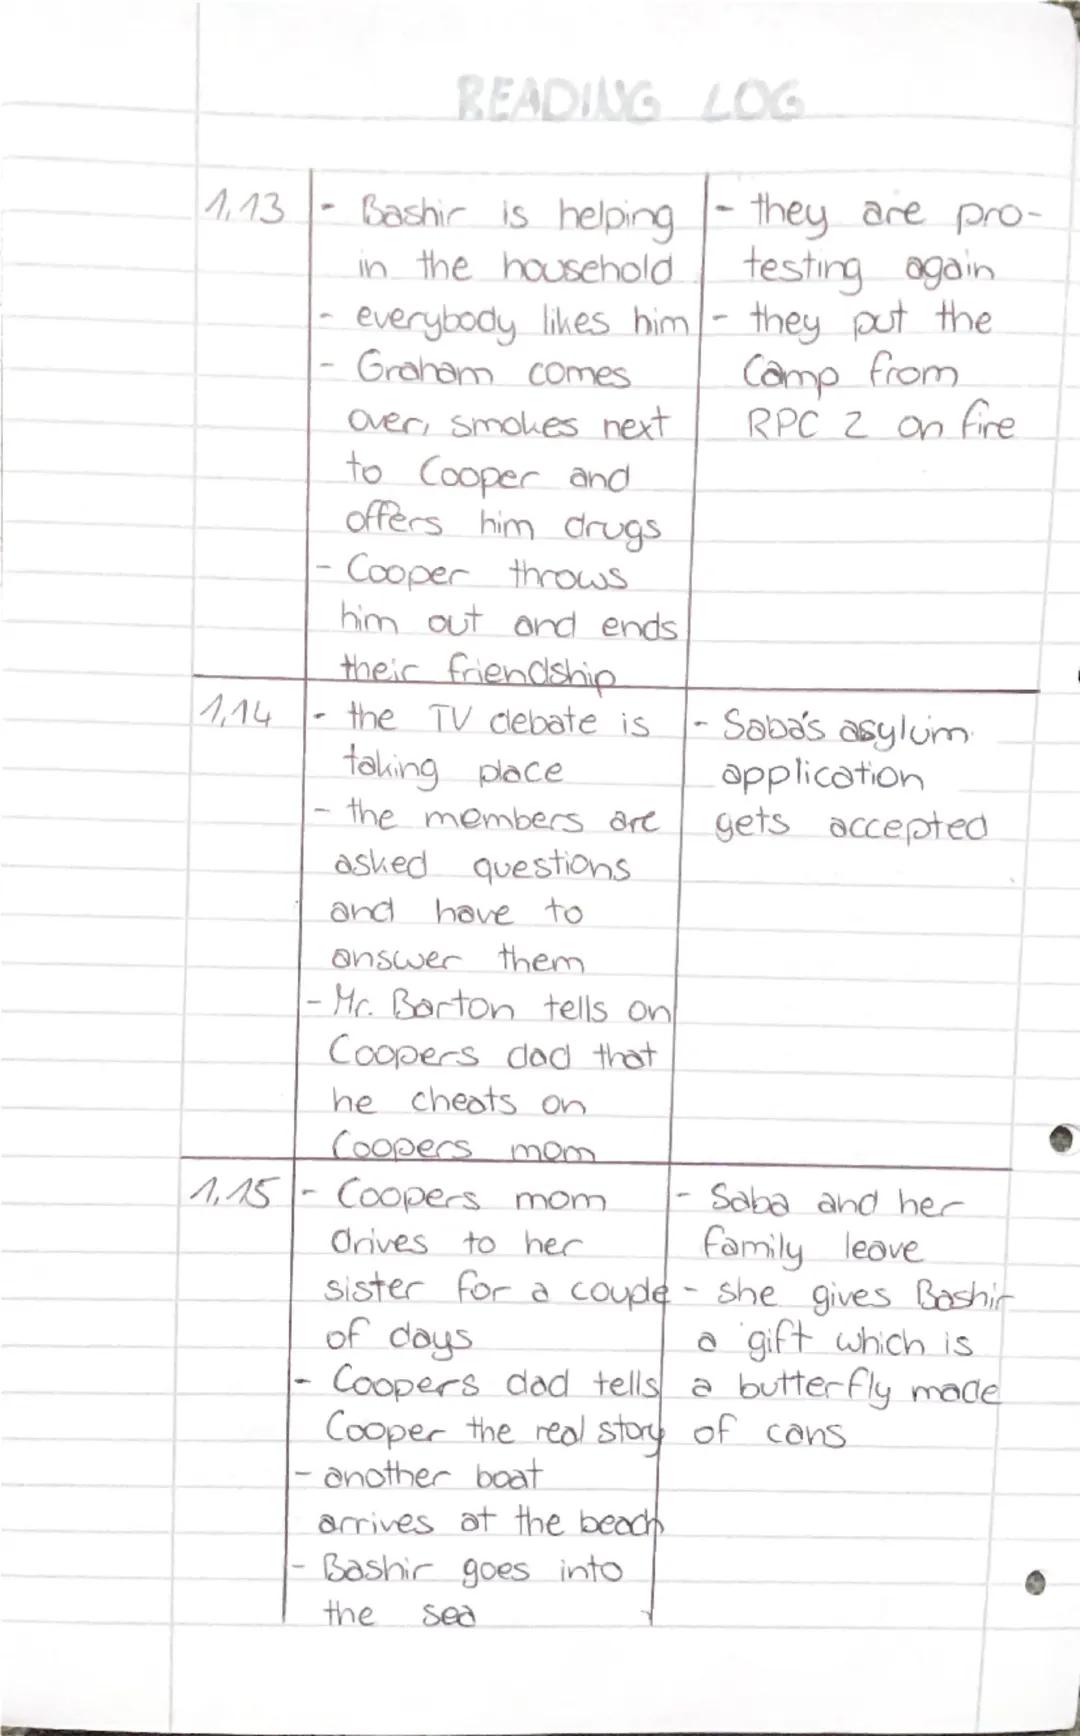 READING LOG
1.13
- Bashir is helping
in the household
- everybody likes him
- Graham comes
over, smokes next
to Cooper and
offers him drugs
- Cooper throws
him out and ends
their friendship
- they are pro-
testing again
- they put the
Camp from
RPC 2 on fire
1.14
- the TV debate is
taking place
- the members are
asked questions
and have to
answer them
- Mr. Barton tells on
Coopers dad that
he cheats on
Coopers mom
- Saba's asylum
application
gets accepted
1.15
- Coopers mom
drives to her
sister for a couple
of days
- Coopers dad tells
Cooper the real story
- another boat
arrives at the beach
- Bashir goes into
the sea
- Saba and her
family leave
- she gives Bashir
a gift which is
a butterfly made
of cans